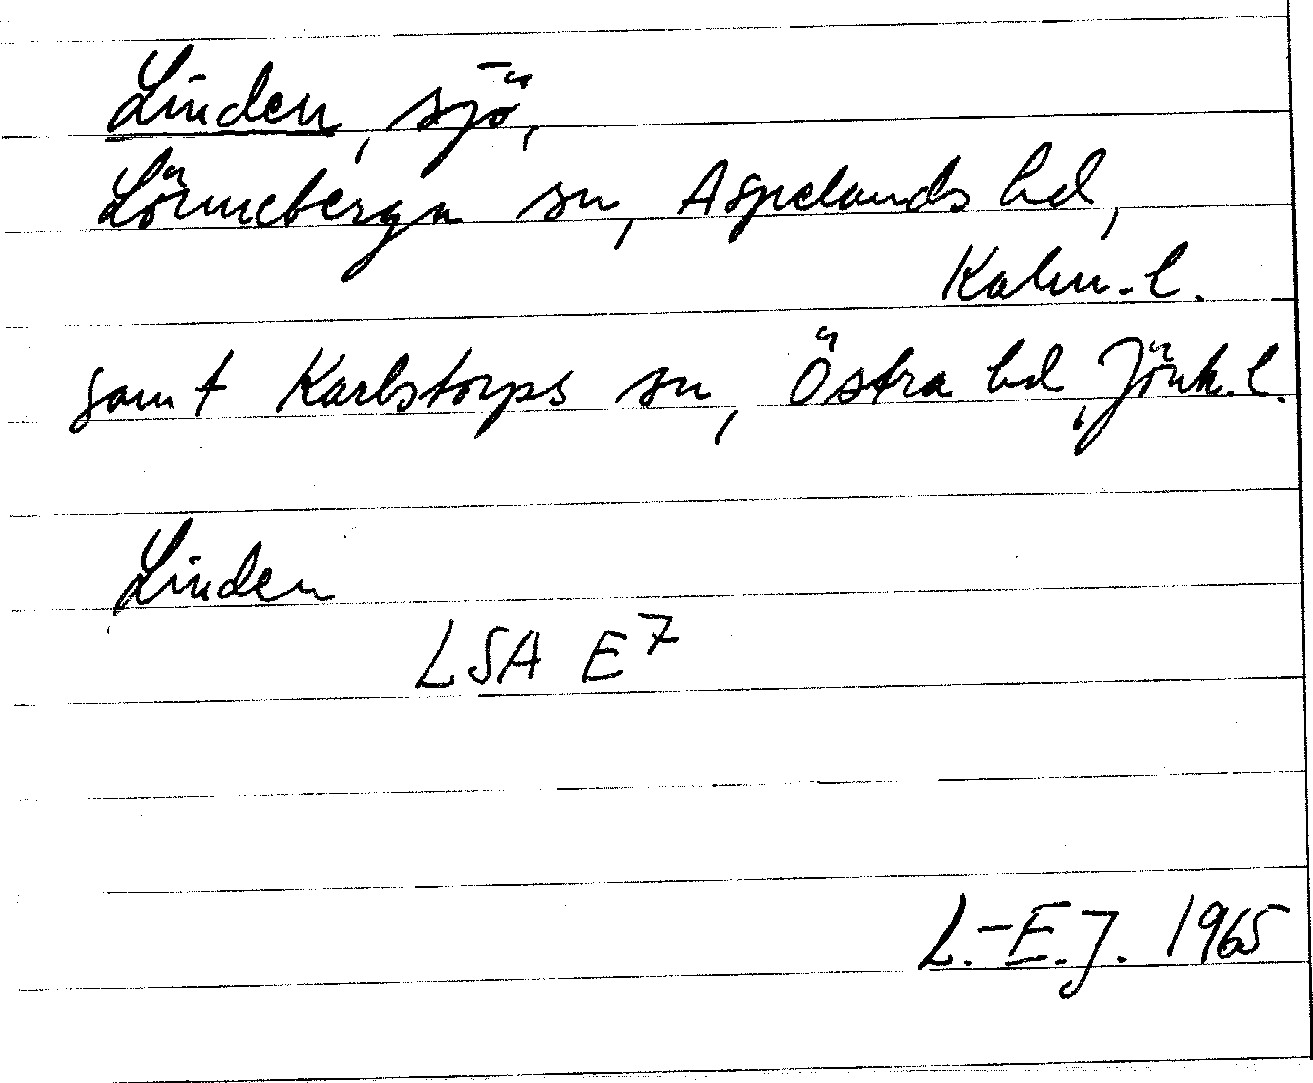 Linden, sjö,
Lönneberga sn, Aspelands hd,
Kalm. l.
samt Karlstorps sn, Östra hd, Jönk. l.
Linden
LSA E7
L.-E. J. 1965